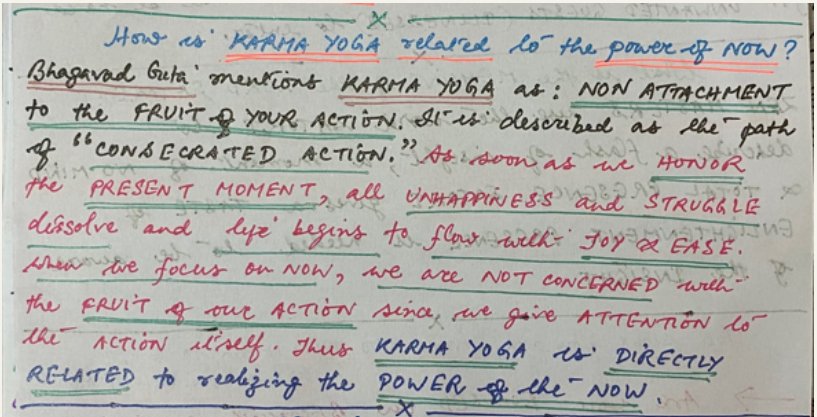 How is KARMA YOGA related to the power of NOW?
Bhagavad Gita mentions KARMA YOGA as: NON ATTACHMENT
to the FRUIT of YOUR ACTION. It is described as the path
of "CONSECRATED ACTION." As soon as we HONOR
the PRESENT MOMENT, all UNHAPPINESS and STRUGGLE
dissolve and life begins to flow with JOY & EASE.
When we focus on NOW, we are NOT CONCERNED with
the FRUIT of our ACTION since we give ATTENTION to
the ACTION itself. Thus KARMA YOGA is DIRECTLY
RELATED to realizing the POWER of the NOW.